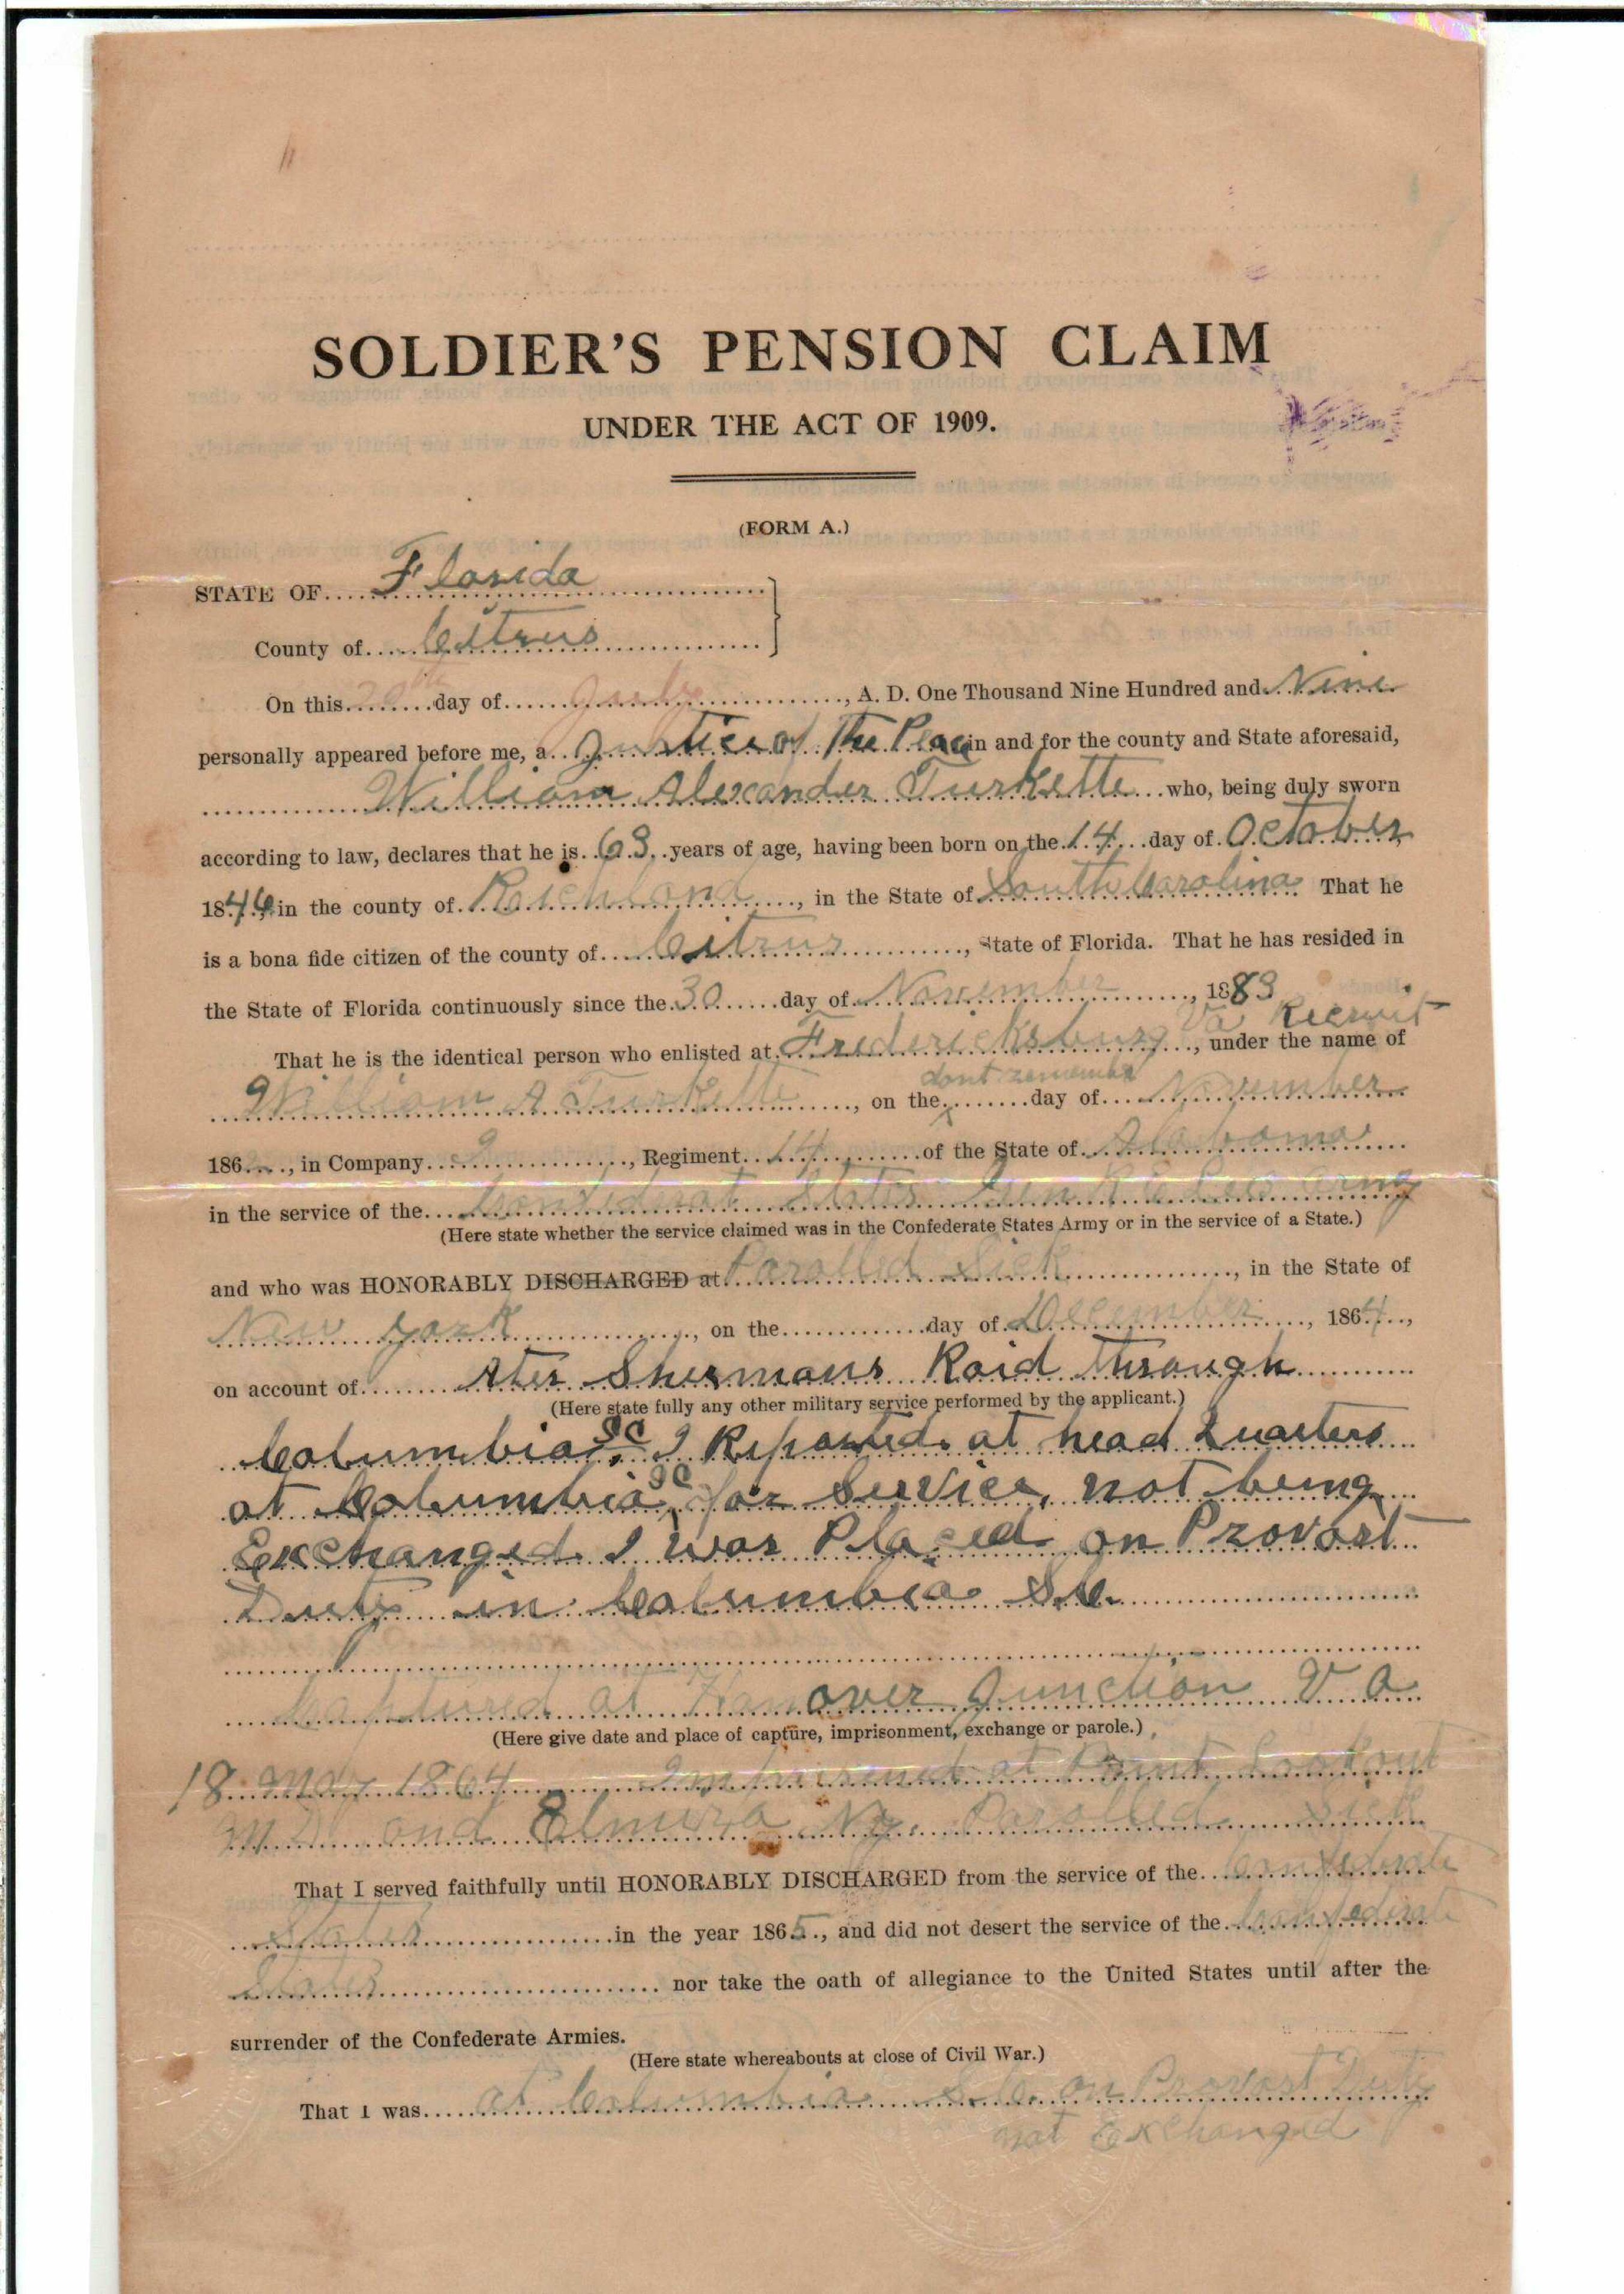 SOLDIER'S PENSION CLAIM
UNDER THE ACT OF 1909.
(FORM A.)
STATE OF Florida
County of Citrus
On this 20th day of July, A. D. One Thousand Nine Hundred and Nine
personally appeared before me, a Justice of The Peace in and for the county and State aforesaid,
William Alexander Turkette who, being duly sworn
according to law, declares that he is 63 years of age, having been born on the 14 day of October
1846, in the county of Raichland, in the State of South Carolina That he
is a bona fide citizen of the county of Citrus, State of Florida. That he has resided in
the State of Florida continuously since the 30 day of November, 1883
Va Recruit
That he is the identical person who enlisted at Fredericksburg, under the name of
dont remember
William A Turkette, on the day of November
186, in Company, Regiment 14 of the State of Alabama
in the service of the Confederat States Gen R E Lees Army
(Here state whether the service claimed was in the Confederate States Army or in the service of a State.)
and who was HONORABLY DISCHARGED at Parolled Sick, in the State of
New York, on the day of December, 1864,
on account of Ater Shermans Raid through
(Here state fully any other military service performed by the applicant.)
Columbia, SC I Reported at head Quarters
at Columbia SC for Service, not being
Exchanged I was Placed on Provost
Duty in Columbia S.C.
Captured at Hanover Junction Va
(Here give date and place of capture, imprisonment, exchange or parole.)
18 May 1864 Imprisoned at Point Lookout
MD and Elmira Ny. Parolled Sick
That I served faithfully until HONORABLY DISCHARGED from the service of the Confederate
States in the year 1865, and did not desert the service of the Confederate
States nor take the oath of allegiance to the United States until after the
surrender of the Confederate Armies.
(Here state whereabouts at close of Civil War.)
That I was at Columbia S.C. on Provost Duty
not Exchanged